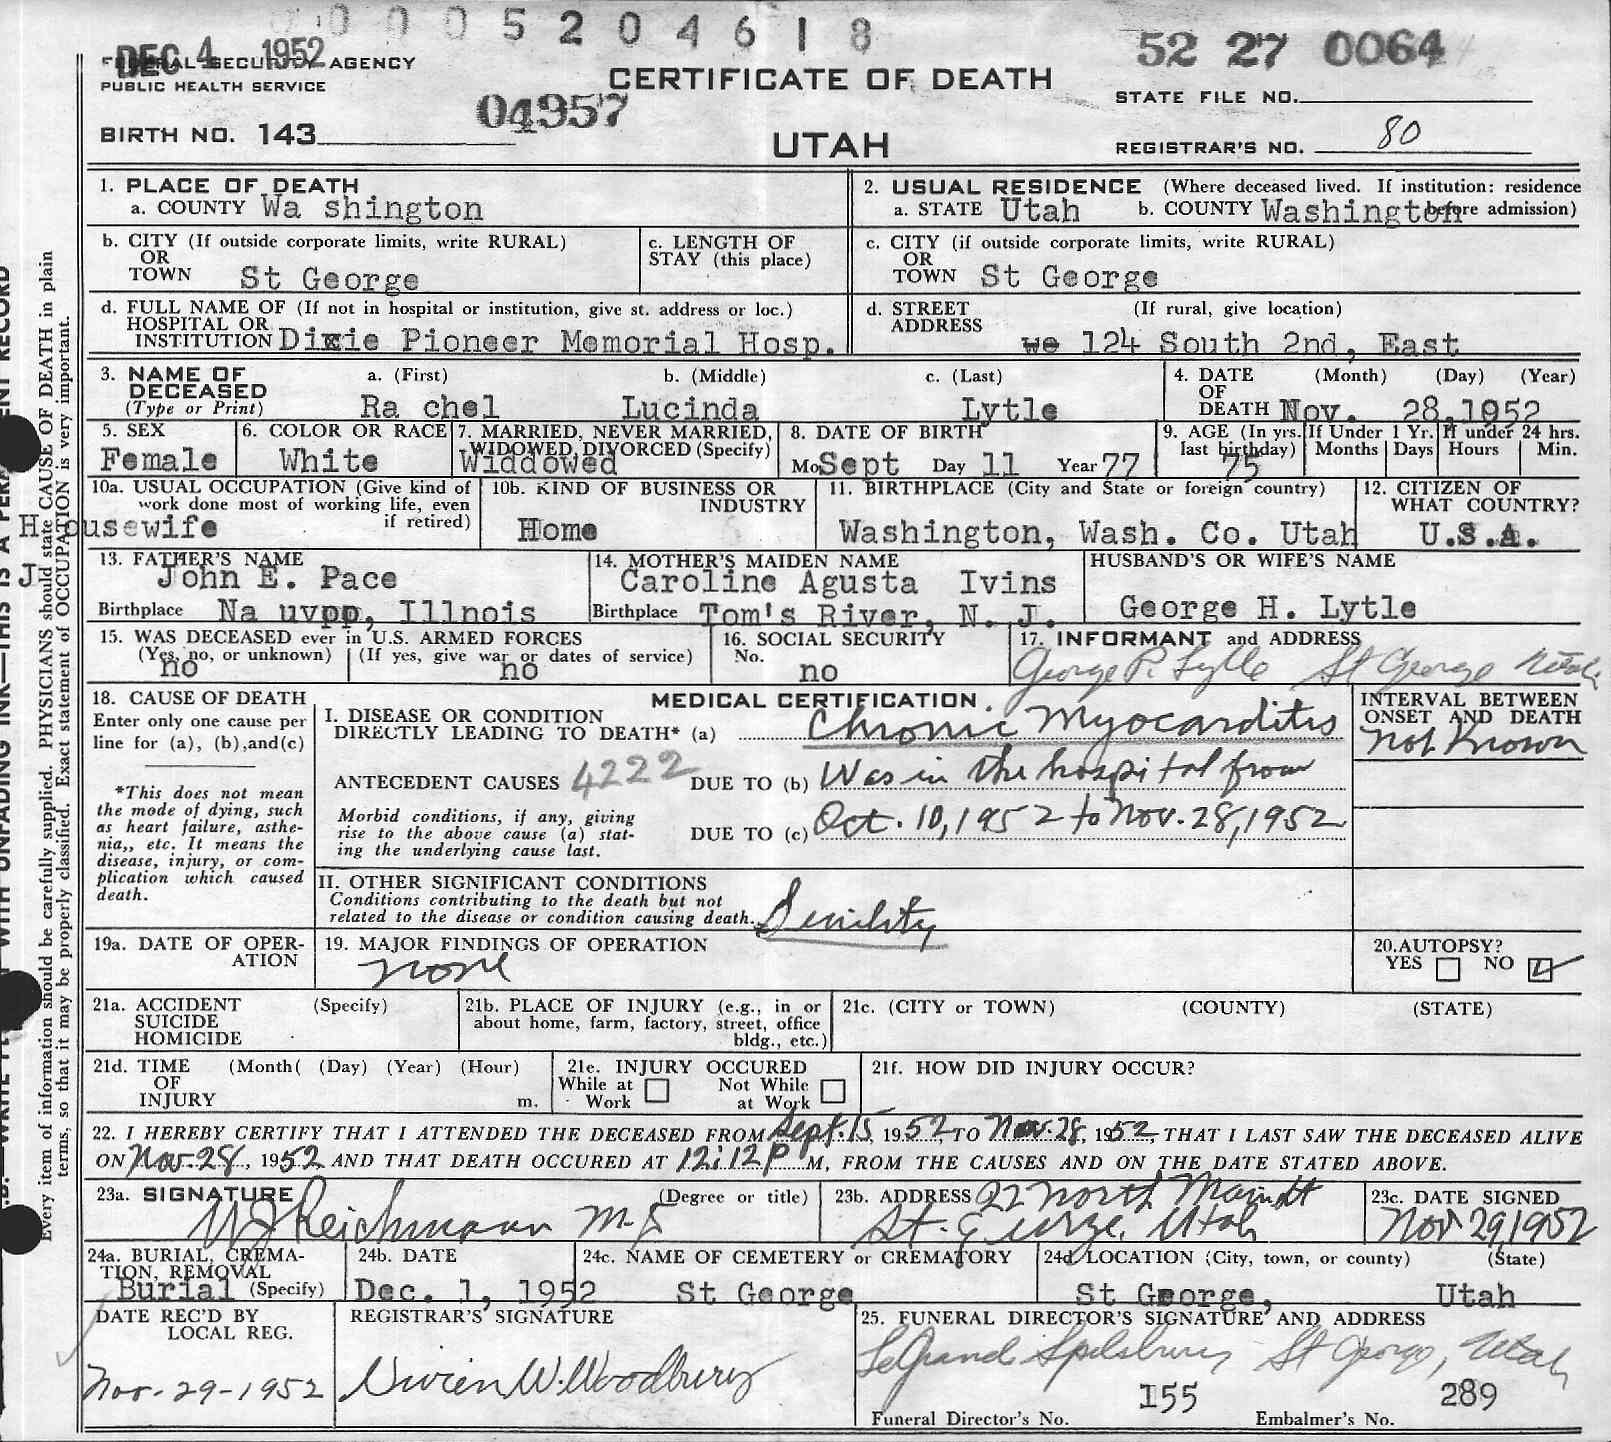 0 0 0 5 2 0 4 6 1 8
DEC 4 1952
52 27 0064
FEDERAL SECURITY AGENCY
PUBLIC HEALTH SERVICE
CERTIFICATE OF DEATH
STATE FILE NO.
04957
BIRTH NO. 143
UTAH
REGISTRAR'S NO. 80
1. PLACE OF DEATH
a. COUNTY Wa shington
2. USUAL RESIDENCE (Where deceased lived. If institution: residence before admission)
a. STATE Utah b. COUNTY Washington
b. CITY (If outside corporate limits, write RURAL)
OR
TOWN St George
c. LENGTH OF
STAY (this place)
c. CITY (if outside corporate limits, write RURAL)
OR
TOWN St George
d. FULL NAME OF (If not in hospital or institution, give st. address or loc.)
HOSPITAL OR
INSTITUTION Dixie Pioneer Memorial Hosp.
d. STREET (If rural, give location)
ADDRESS we 124 South 2nd, East
3. NAME OF DECEASED
(Type or Print)
a. (First) b. (Middle) c. (Last)
Ra chel Lucinda Lytle
4. DATE OF DEATH (Month) (Day) (Year)
Nov. 28,1952
5. SEX
Female
6. COLOR OR RACE
White
7. MARRIED, NEVER MARRIED,
WIDOWED, DIVORCED (Specify)
Widdowed
8. DATE OF BIRTH
Mo Sept Day 11 Year 77
9. AGE (In yrs. last birthday)
75
If Under 1 Yr.
Months Days
If under 24 hrs.
Hours Min.
10a. USUAL OCCUPATION (Give kind of
work done most of working life, even
if retired)
Housewife
10b. KIND OF BUSINESS OR
INDUSTRY
Home
11. BIRTHPLACE (City and State or foreign country)
Washington, Wash. Co. Utah
12. CITIZEN OF
WHAT COUNTRY?
U.S.A.
13. FATHER'S NAME
J John E. Pace
Birthplace Na uvpp, Illnois
14. MOTHER'S MAIDEN NAME
Caroline Agusta Ivins
Birthplace Tom's River, N. J.
HUSBAND'S OR WIFE'S NAME
George H. Lytle
15. WAS DECEASED ever in U.S. ARMED FORCES
(Yes, no, or unknown) (If yes, give war or dates of service)
no no
16. SOCIAL SECURITY
No.
no
17. INFORMANT and ADDRESS
George P. Lytle St George Utah
18. CAUSE OF DEATH
Enter only one cause per
line for (a), (b),and(c)
*This does not mean
the mode of dying, such
as heart failure, asthe-
nia,, etc. It means the
disease, injury, or com-
plication which caused
death.
MEDICAL CERTIFICATION
I. DISEASE OR CONDITION
DIRECTLY LEADING TO DEATH* (a) Chronic Myocarditis
ANTECEDENT CAUSES 4222 DUE TO (b) Was in the hospital from
Morbid conditions, if any, giving
rise to the above cause (a) stat-
ing the underlying cause last.
DUE TO (c) Oct. 10, 1952 to Nov. 28, 1952
INTERVAL BETWEEN
ONSET AND DEATH
Not Known
II. OTHER SIGNIFICANT CONDITIONS
Conditions contributing to the death but not
related to the disease or condition causing death.
Senility
19a. DATE OF OPER-
ATION
19. MAJOR FINDINGS OF OPERATION
none
20. AUTOPSY?
YES NO
21a. ACCIDENT (Specify)
SUICIDE
HOMICIDE
21b. PLACE OF INJURY (e.g., in or
about home, farm, factory, street, office
bldg., etc.)
21c. (CITY or TOWN) (COUNTY) (STATE)
21d. TIME (Month( (Day) (Year) (Hour)
OF
INJURY m.
21e. INJURY OCCURED
While at Work Not While at Work
21f. HOW DID INJURY OCCUR?
22. I HEREBY CERTIFY THAT I ATTENDED THE DECEASED FROM Sept. 15, 1952 TO Nov. 28, 1952, THAT I LAST SAW THE DECEASED ALIVE
ON Nov. 28, 1952 AND THAT DEATH OCCURED AT 12:12 P M, FROM THE CAUSES AND ON THE DATE STATED ABOVE.
23a. SIGNATURE (Degree or title)
Reichmann M.D
23b. ADDRESS 22 North Main St
St. George, Utah
23c. DATE SIGNED
Nov 29, 1952
24a. BURIAL, CREMA-
TION, REMOVAL
Burial (Specify)
24b. DATE
Dec. 1, 1952
24c. NAME OF CEMETERY or CREMATORY
St George
24d LOCATION (City, town, or county) (State)
St George, Utah
DATE REC'D BY
LOCAL REG.
Nov-29-1952
REGISTRAR'S SIGNATURE
Vivien W. Woodbury
25. FUNERAL DIRECTOR'S SIGNATURE AND ADDRESS
LeGrand Spilsbury St George, Utah
155 289
Funeral Director's No. Embalmer's No.
WITH UNFADING INK—THIS IS A PERMANENT RECORD
Every item of information should be carefully supplied. PHYSICIANS should state CAUSE OF DEATH in plain
terms, so that it may be properly classified. Exact statement of OCCUPATION is very important.